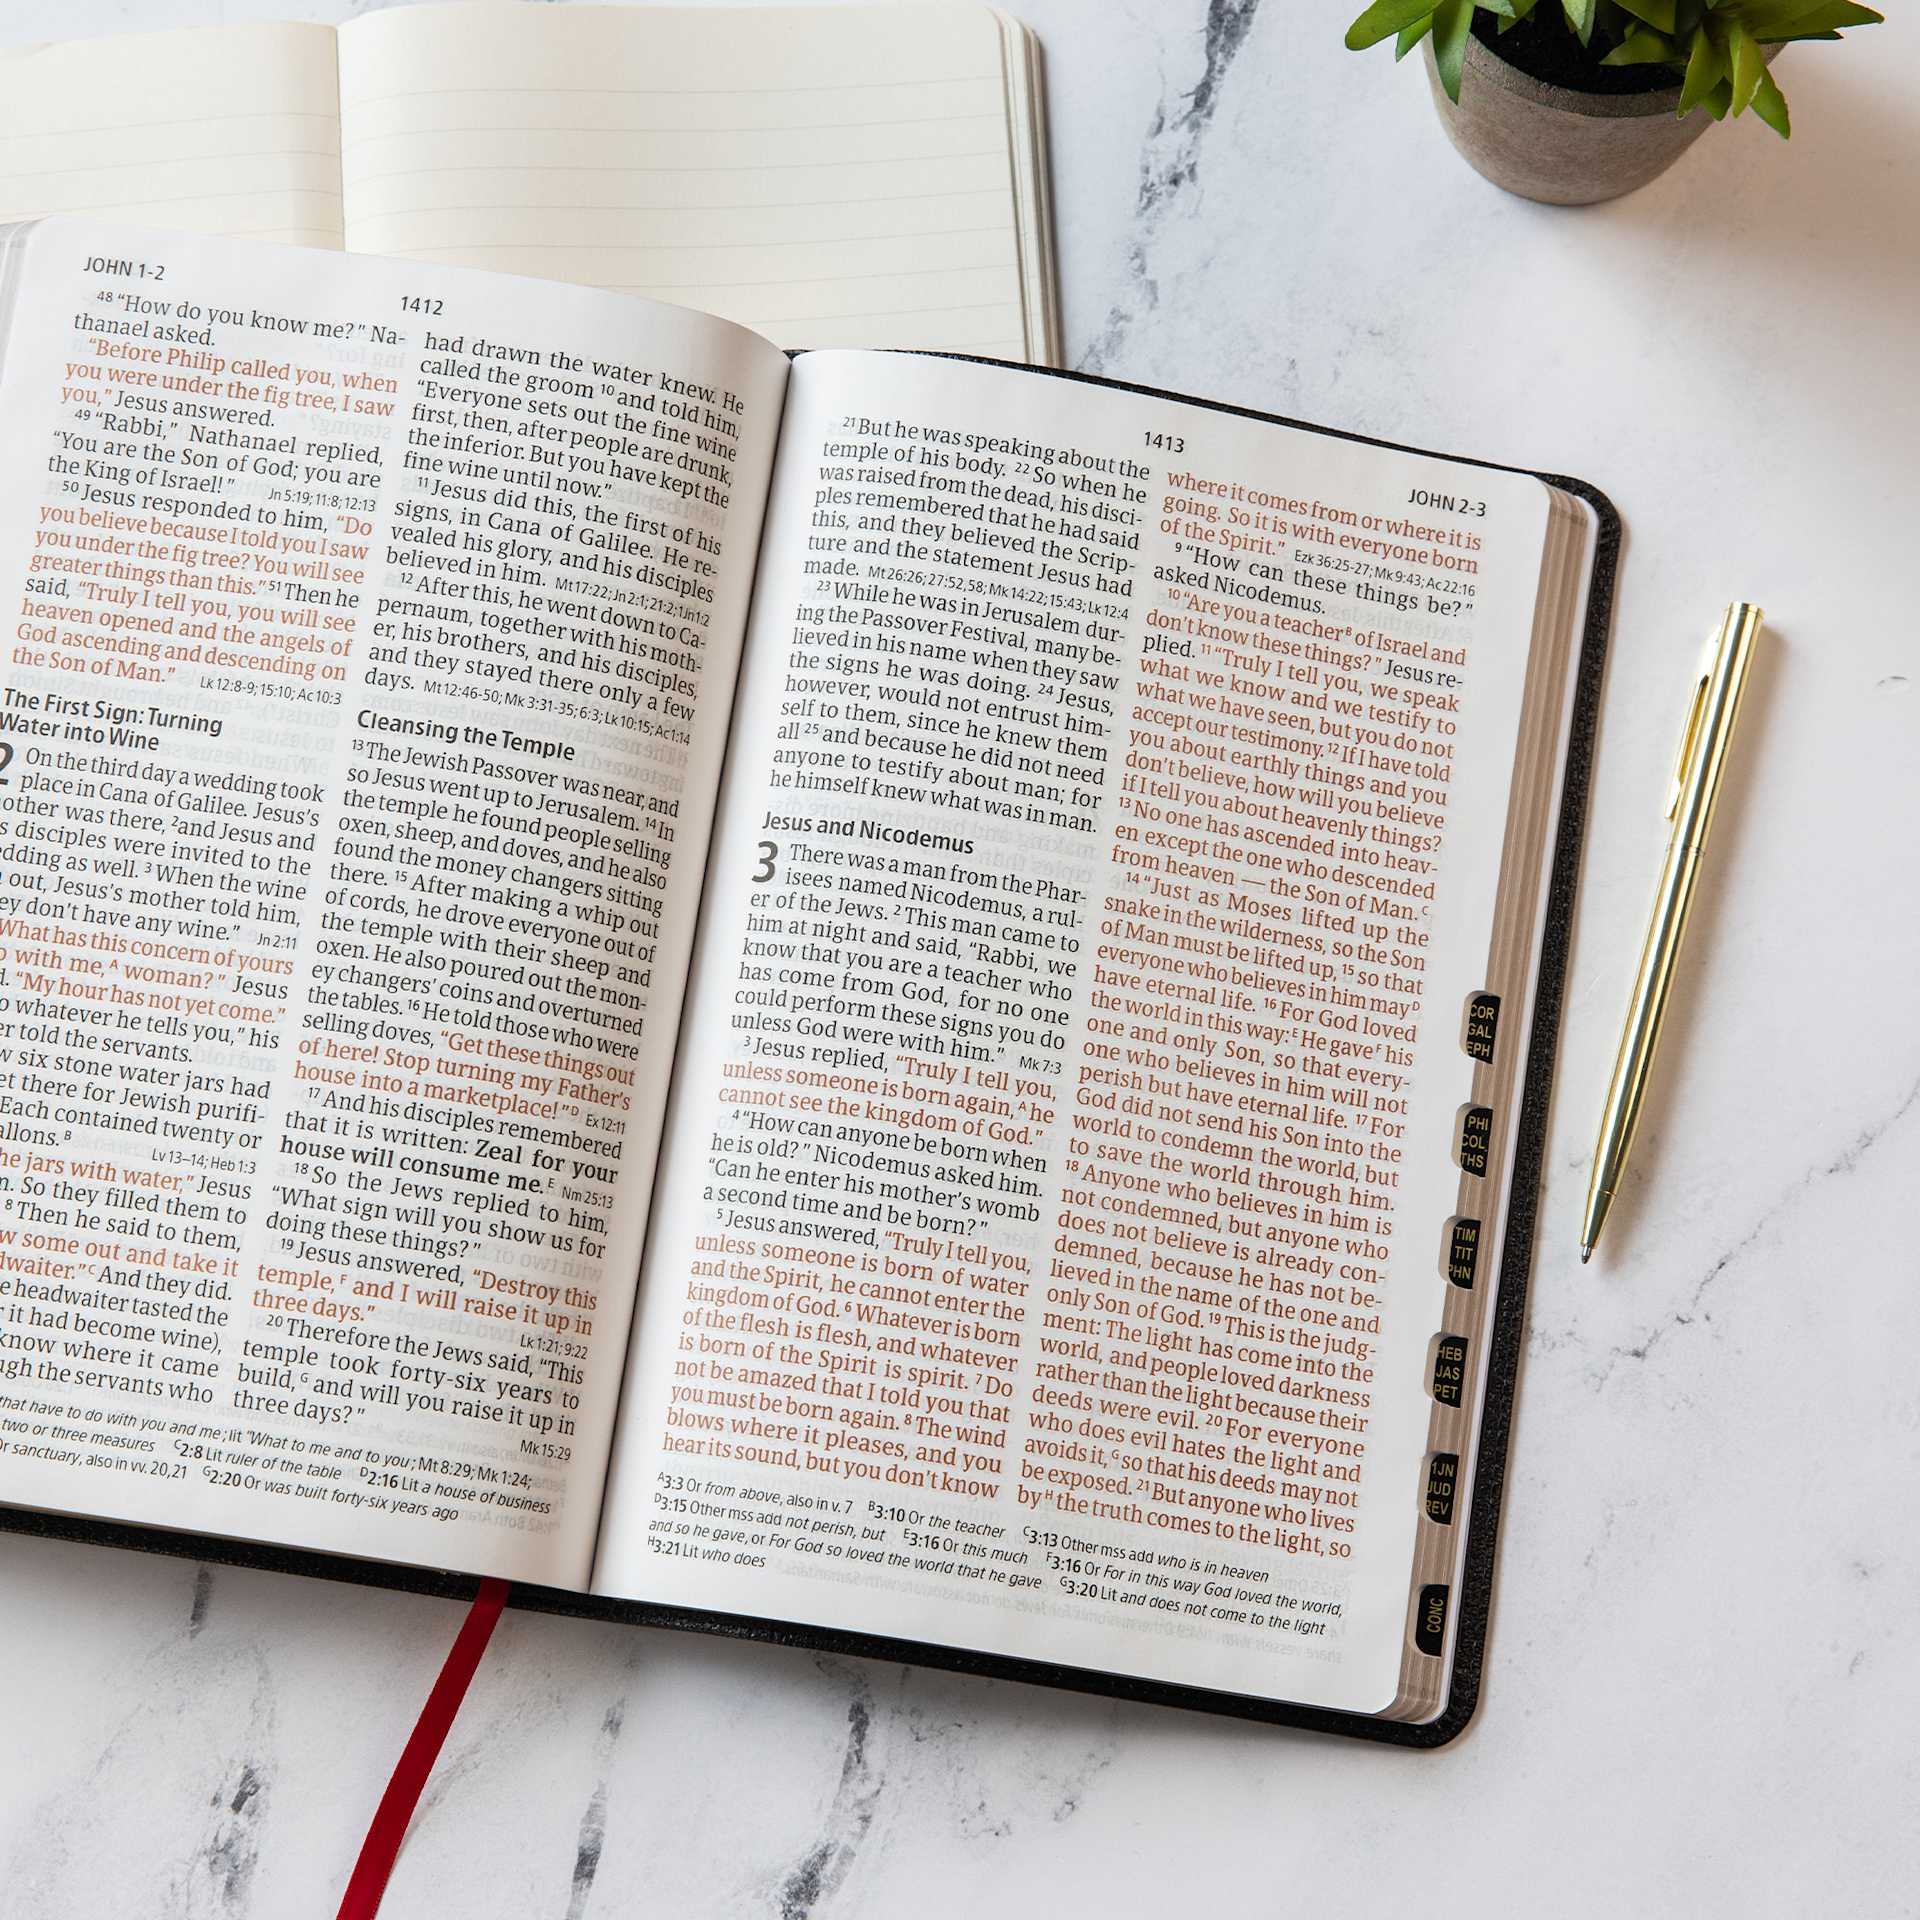 JOHN 1-2
1412
48 “How do you know me?” Na-
thanael asked.
“Before Philip called you, when
you were under the fig tree, I saw
you,” Jesus answered.
49 “Rabbi,” Nathanael replied,
“You are the Son of God; you are
the King of Israel!” Jn 5:19; 11:8; 12:13
50 Jesus responded to him, “Do
you believe because I told you I saw
you under the fig tree? You will see
greater things than this.” 51 Then he
said, “Truly I tell you, you will see
heaven opened and the angels of
God ascending and descending on
the Son of Man.” Lk 12:8-9; 15:10; Ac 10:3
The First Sign: Turning
Water into Wine
2 On the third day a wedding took
place in Cana of Galilee. Jesus’s
other was there, 2 and Jesus and
s disciples were invited to the
edding as well. 3 When the wine
out, Jesus’s mother told him,
ey don’t have any wine.” Jn 2:11
What has this concern of yours
with me, A woman?” Jesus
“My hour has not yet come.”
o whatever he tells you,” his
er told the servants.
w six stone water jars had
et there for Jewish purifi-
Each contained twenty or
allons. B
Lv 13–14; Heb 1:3
he jars with water,” Jesus
. So they filled them to
8 Then he said to them,
w some out and take it
dwaiter.” C And they did.
e headwaiter tasted the
r it had become wine),
know where it came
ugh the servants who
had drawn the water knew. He
called the groom 10 and told him,
“Everyone sets out the fine wine
first, then, after people are drunk,
the inferior. But you have kept the
fine wine until now.”
11 Jesus did this, the first of his
signs, in Cana of Galilee. He re-
vealed his glory, and his disciples
believed in him. Mt 17:22; Jn 2:1; 21:2; 1Jn 1:2
12 After this, he went down to Ca-
pernaum, together with his moth-
er, his brothers, and his disciples,
and they stayed there only a few
days. Mt 12:46-50; Mk 3:31-35; 6:3; Lk 10:15; Ac 1:14
Cleansing the Temple
13 The Jewish Passover was near, and
so Jesus went up to Jerusalem. 14 In
the temple he found people selling
oxen, sheep, and doves, and he also
found the money changers sitting
there. 15 After making a whip out
of cords, he drove everyone out of
the temple with their sheep and
oxen. He also poured out the mon-
ey changers’ coins and overturned
the tables. 16 He told those who were
selling doves, “Get these things out
of here! Stop turning my Father’s
house into a marketplace!” D Ex 12:11
17 And his disciples remembered
that it is written: Zeal for your
house will consume me. E Nm 25:13
18 So the Jews replied to him,
“What sign will you show us for
doing these things?”
19 Jesus answered, “Destroy this
temple, F and I will raise it up in
three days.” Lk 1:21; 9:22
20 Therefore the Jews said, “This
temple took forty-six years to
build, G and will you raise it up in
three days?” Mk 15:29
that have to do with you and me; lit “What to me and to you; Mt 8:29; Mk 1:24;
two or three measures C 2:8 Lit ruler of the table D 2:16 Lit a house of business
Or sanctuary, also in vv. 20,21 G 2:20 Or was built forty-six years ago
1413
JOHN 2-3
21 But he was speaking about the
temple of his body. 22 So when he
was raised from the dead, his disci-
ples remembered that he had said
this, and they believed the Scrip-
ture and the statement Jesus had
made. Mt 26:26; 27:52,58; Mk 14:22; 15:43; Lk 12:4
23 While he was in Jerusalem dur-
ing the Passover Festival, many be-
lieved in his name when they saw
the signs he was doing. 24 Jesus,
however, would not entrust him-
self to them, since he knew them
all 25 and because he did not need
anyone to testify about man; for
he himself knew what was in man.
Jesus and Nicodemus
3 There was a man from the Phar-
isees named Nicodemus, a rul-
er of the Jews. 2 This man came to
him at night and said, “Rabbi, we
know that you are a teacher who
has come from God, for no one
could perform these signs you do
unless God were with him.” Mk 7:3
3 Jesus replied, “Truly I tell you,
unless someone is born again, A he
cannot see the kingdom of God.”
4 “How can anyone be born when
he is old?” Nicodemus asked him.
“Can he enter his mother’s womb
a second time and be born?”
5 Jesus answered, “Truly I tell you,
unless someone is born of water
and the Spirit, he cannot enter the
kingdom of God. 6 Whatever is born
of the flesh is flesh, and whatever
is born of the Spirit is spirit. 7 Do
not be amazed that I told you that
you must be born again. 8 The wind
blows where it pleases, and you
hear its sound, but you don’t know
where it comes from or where it is
going. So it is with everyone born
of the Spirit.” Ezk 36:25-27; Mk 9:43; Ac 22:16
9 “How can these things be?”
asked Nicodemus.
10 “Are you a teacher B of Israel and
don’t know these things?” Jesus re-
plied. 11 “Truly I tell you, we speak
what we know and we testify to
what we have seen, but you do not
accept our testimony. 12 If I have told
you about earthly things and you
don’t believe, how will you believe
if I tell you about heavenly things?
13 No one has ascended into heav-
en except the one who descended
from heaven — the Son of Man. C
14 “Just as Moses lifted up the
snake in the wilderness, so the Son
of Man must be lifted up, 15 so that
everyone who believes in him may D
have eternal life. 16 For God loved
the world in this way: E He gave F his
one and only Son, so that every-
one who believes in him will not
perish but have eternal life. 17 For
God did not send his Son into the
world to condemn the world, but
to save the world through him.
18 Anyone who believes in him is
not condemned, but anyone who
does not believe is already con-
demned, because he has not be-
lieved in the name of the one and
only Son of God. 19 This is the judg-
ment: The light has come into the
world, and people loved darkness
rather than the light because their
deeds were evil. 20 For everyone
who does evil hates the light and
avoids it, G so that his deeds may not
be exposed. 21 But anyone who lives
by H the truth comes to the light, so
A 3:3 Or from above, also in v. 7 B 3:10 Or the teacher C 3:13 Other mss add who is in heaven
D 3:15 Other mss add not perish, but E 3:16 Or this much F 3:16 Or For in this way God loved the world,
and so he gave, or For God so loved the world that he gave G 3:20 Lit and does not come to the light
H 3:21 Lit who does
COR
GAL
EPH
PHI
COL
THS
TIM
TIT
PHN
HEB
JAS
PET
1JN
JUD
REV
CONC